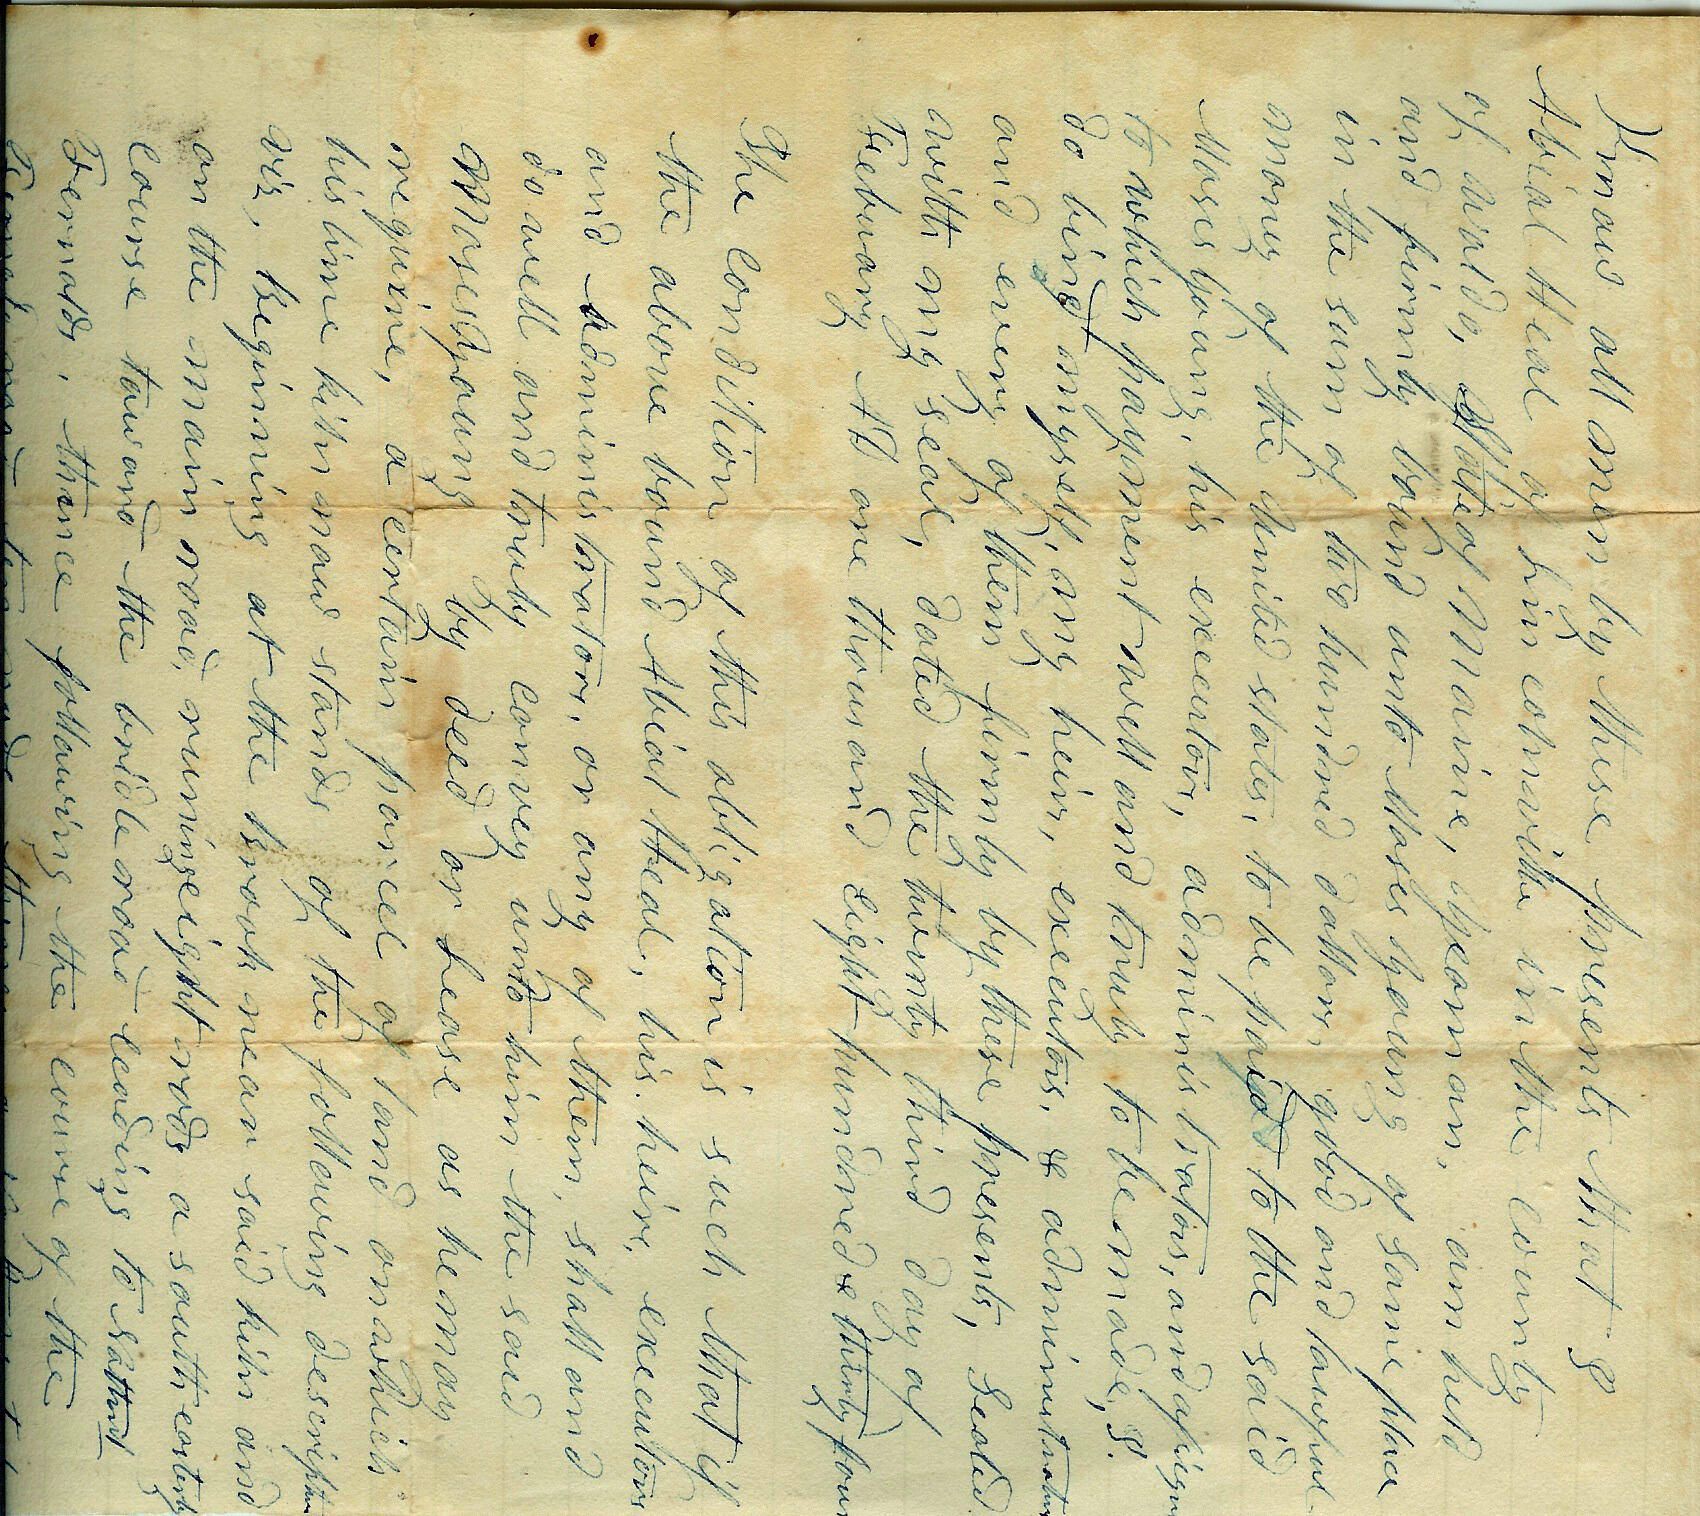 Know all men by these presents that I
Abial Heal of Lincolnville in the County
of Waldo, State of Maine, yeoman, am held
and firmly bound unto Moses Young of same place
in the sum of two hundred dollars, good and lawful
money of the United States, to be paid to the said
Moses Young, his executors, administrators, and assigns
to which payment well and truly to be made, I.
do bind myself, my heirs, executors, & administrators
and every of them firmly by these presents, Sealed
with my seal, dated the twenty third day of
Feebuary AD one thousand Eight hundred & thirty four
The Condition of this obligation is such that if
the above bound Abial Heal, his heirs, executors
and Administrators, or any of them, shall and
do well and truly convey unto him the said
Moses Young by deed or Lease as he may
require, a certain parcel of land on which
his lime kiln now stands of the following description
viz, Beginning at the brook near said kiln and
on the main road, runing eight rods a south easterly
Course toward the bridle road leading to
Fernalds, thence following the course of the